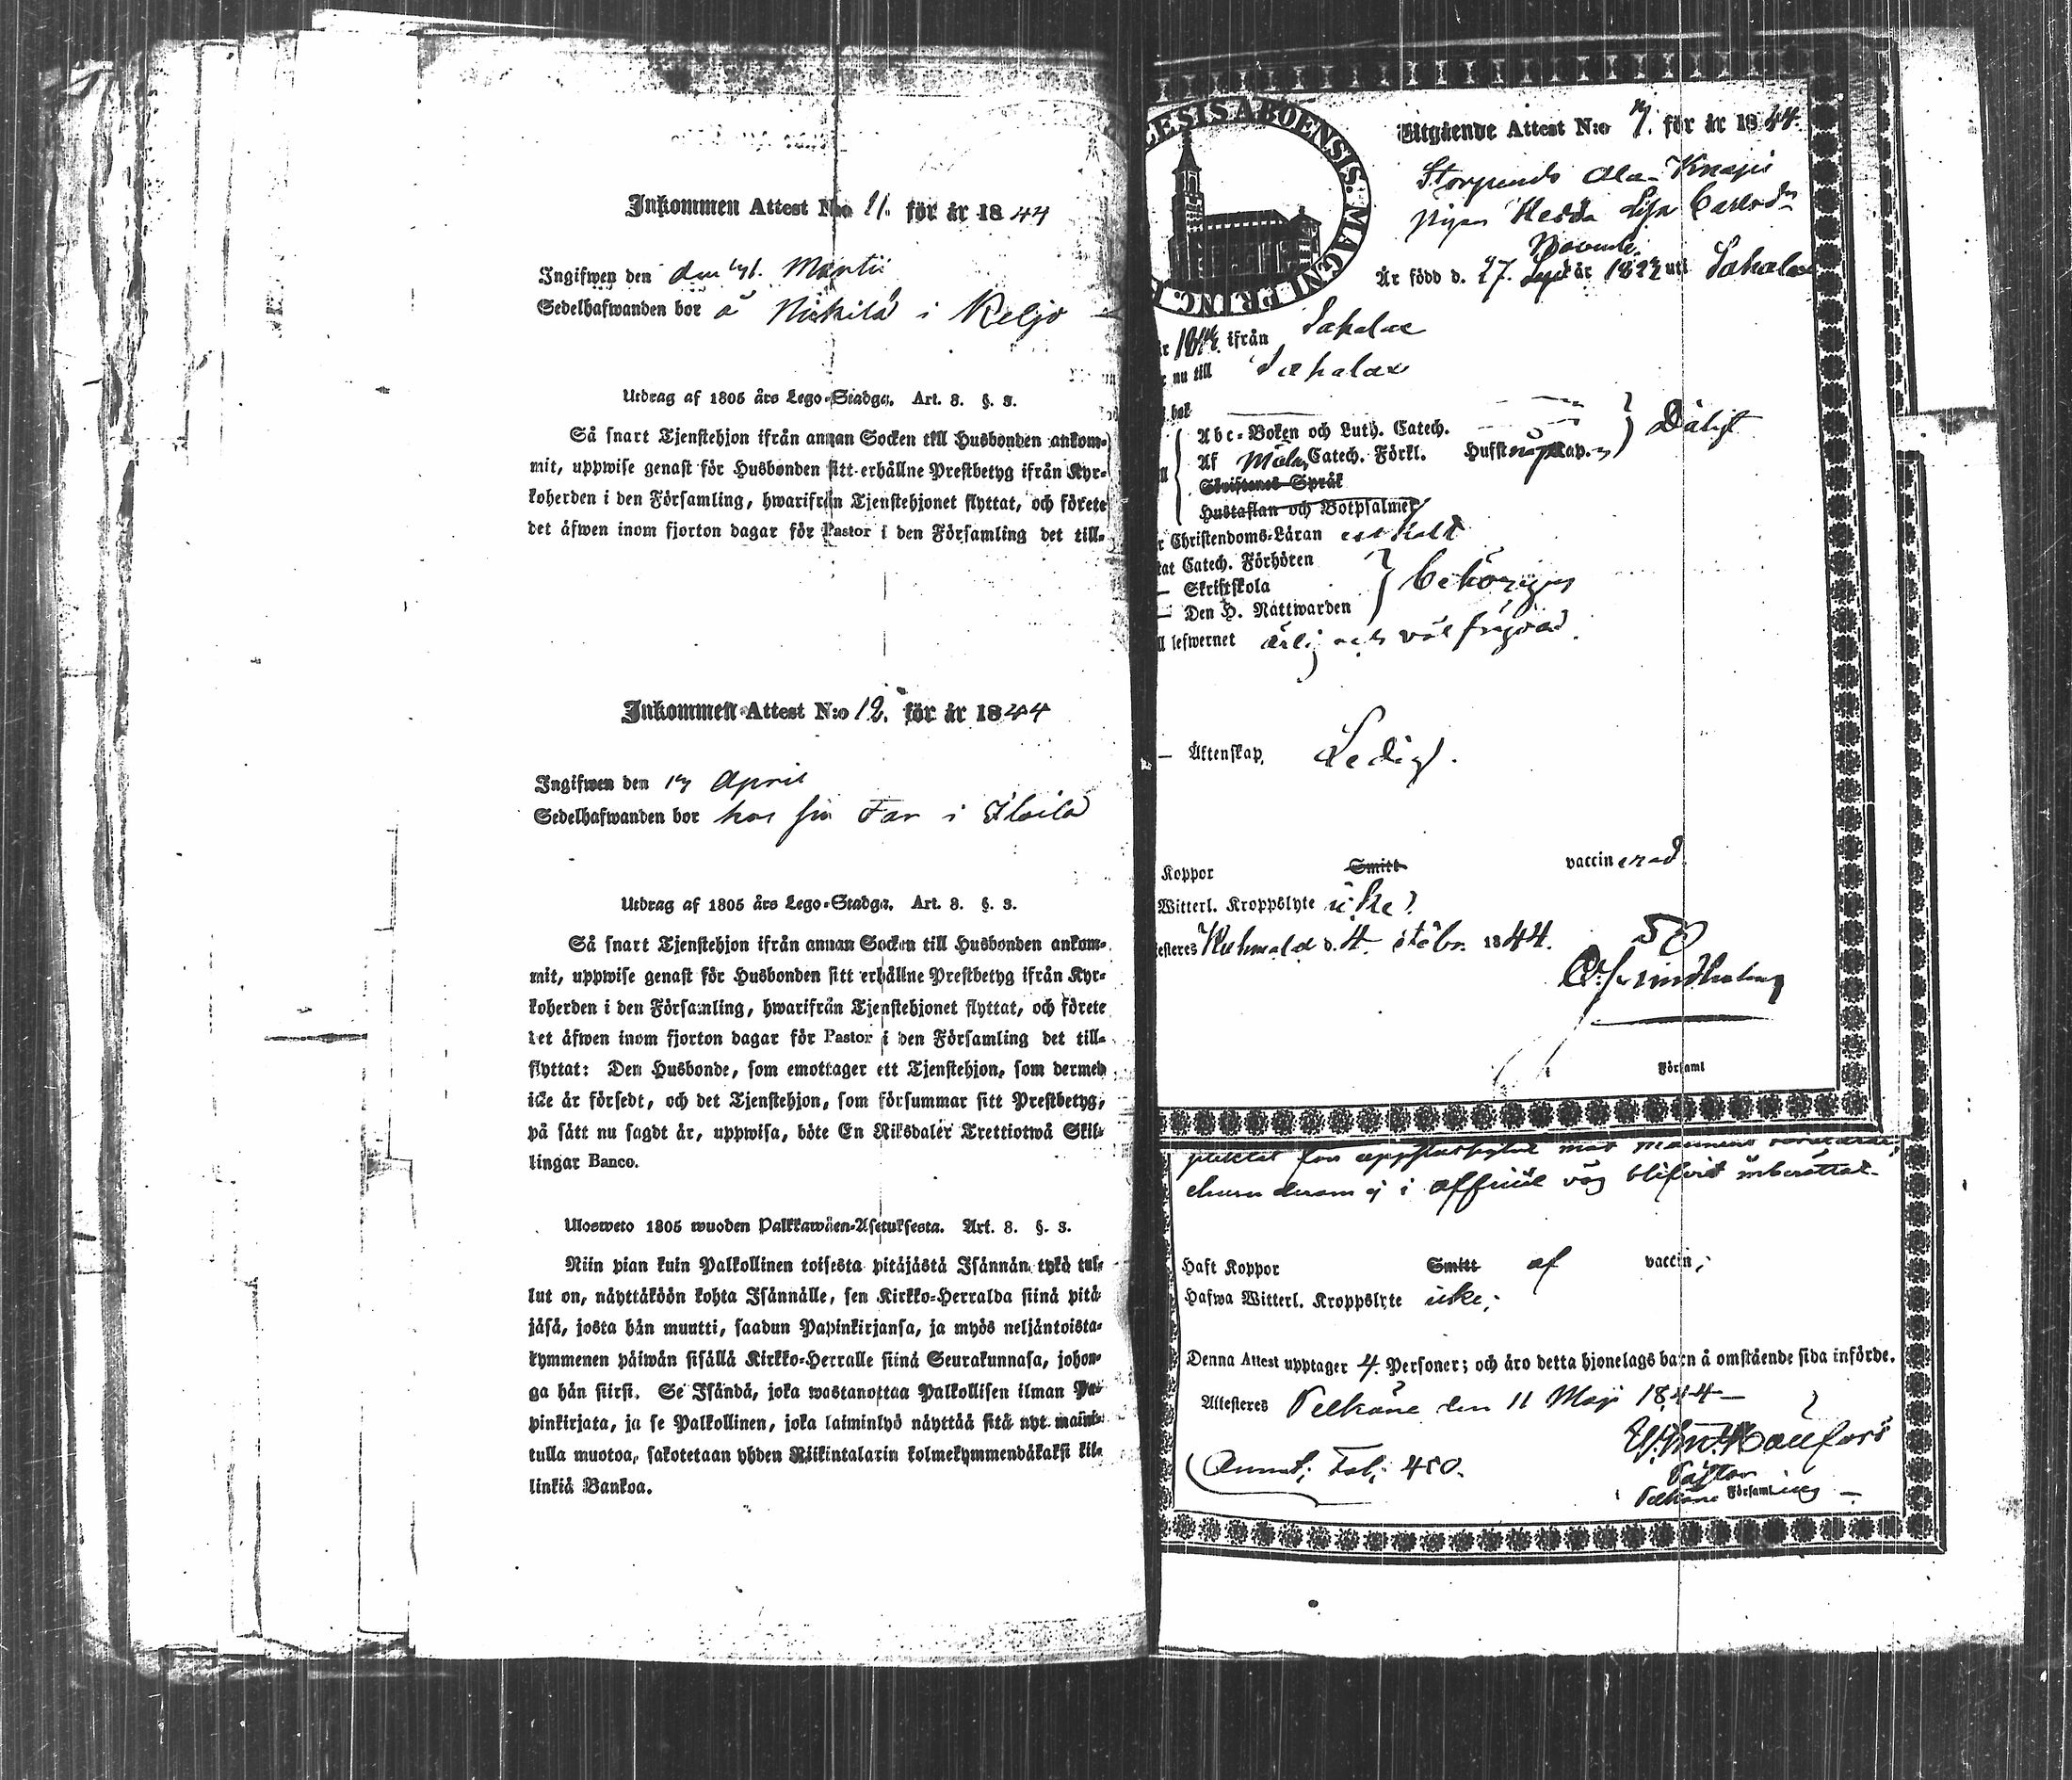 Inkommen Attest N:o 11. för år 1844
Ingifwen den Martii
Sedelhafwanden bor å Nikkilä i Keljo
Utdrag af 1805 års Lego-Stadga. Art. 8. §. 3.
Så snart Tjenstehjon ifrån annan Socken till Husbonden ankom-
mit, uppwise genast för Husbonden sitt erhållne Prestbetyg ifrån Kyr-
koherden i den Församling, hwarifrån Tjenstehjonet flyttat, och förete
det äfwen inom fjorton dagar för Pastor i den Församling det till-
Inkommen Attest N:o 12. för år 1844
Ingifwen den April
Sedelhafwanden bor hos sin Far i
Utdrag af 1805 års Lego-Stadga. Art. 8. §. 3.
Så snart Tjenstehjon ifrån annan Socken till Husbonden ankom-
mit, uppwise genast för Husbonden sitt erhållne Prestbetyg ifrån Kyr-
koherden i den Församling, hwarifrån Tjenstehjonet flyttat, och förete
det äfwen inom fjorton dagar för Pastor i den Församling det till-
flyttat: Den Husbonde, som emottager ett Tjenstehjon, som dermed
icke är försedt, och det Tjenstehjon, som försummar sitt Prestbetyg,
på sätt nu sagdt är, uppwisa, böte En Riksdaler Trettiotwå Skil-
lingar Banco.
Ulosweto 1805 wuoden Palkkawäen-Asetuksesta. Art. 8. §. 3.
Niin pian kuin Palkollinen toisesta pitäjästä Isännän tykö tul-
lut on, näyttäköön kohta Isännälle, sen Kirkko-Herralda siinä pitä-
jäsä, josta hän muutti, saadun Papinkirjansa, ja myös neljäntoista-
kymmenen päiwän sisällä Kirkko-Herralle siinä Seurakunnasa, johon-
ga hän siirsi. Se Isändä, joka wastanottaa Palkollisen ilman Pa-
pinkirjata, ja se Palkollinen, joka laiminlyö näyttää sitä nyt maini-
tulla muotoa, sakotetaan yhden Riikintalarin kolmekymmendäkaksi kil-
linkiä Bankoa.
ESIS ABOENSIS. MAGNI PRINC.
Utgående Attest N:o 7. för år 1844.
Ala-Knapi
pigan Hedda Lisa Carlsdr
November
Är född d. 27. Sept år 1822 uti Sahalax
ifrån Sahalax
nu till Sahalax
Abc-Boken och Luth. Catech.
Af Catech. Förkl. Dåligt
Skriftenes Språk
Hustaflan och Botpsalmer
Christendoms-Läran enkelt
Catech. Förhören
— Skriftskola behörigen
— Den H. Nattwarden
lefwernet ärlig och väl frejdad.
— Äktenskap, Ledig.
Koppor Smitt vaccinerad.
Witterl. Kroppslyte icke.
esteres Kuhmalax d. 4 8tobr. 1844.
Församl
för med mannens
derom ej i officiel väg blifvit inberättad
Haft Koppor Smitt af vaccin;
Hafwa Witterl. Kroppslyte icke;
Denna Attest upptager 4 Personer; och äro detta hjonelags barn å omstående sida införde.
Attesteres Pelkäne den 11 Maji 1844
Pastor
Annot; Fol; 450.
Pelkäne Församling